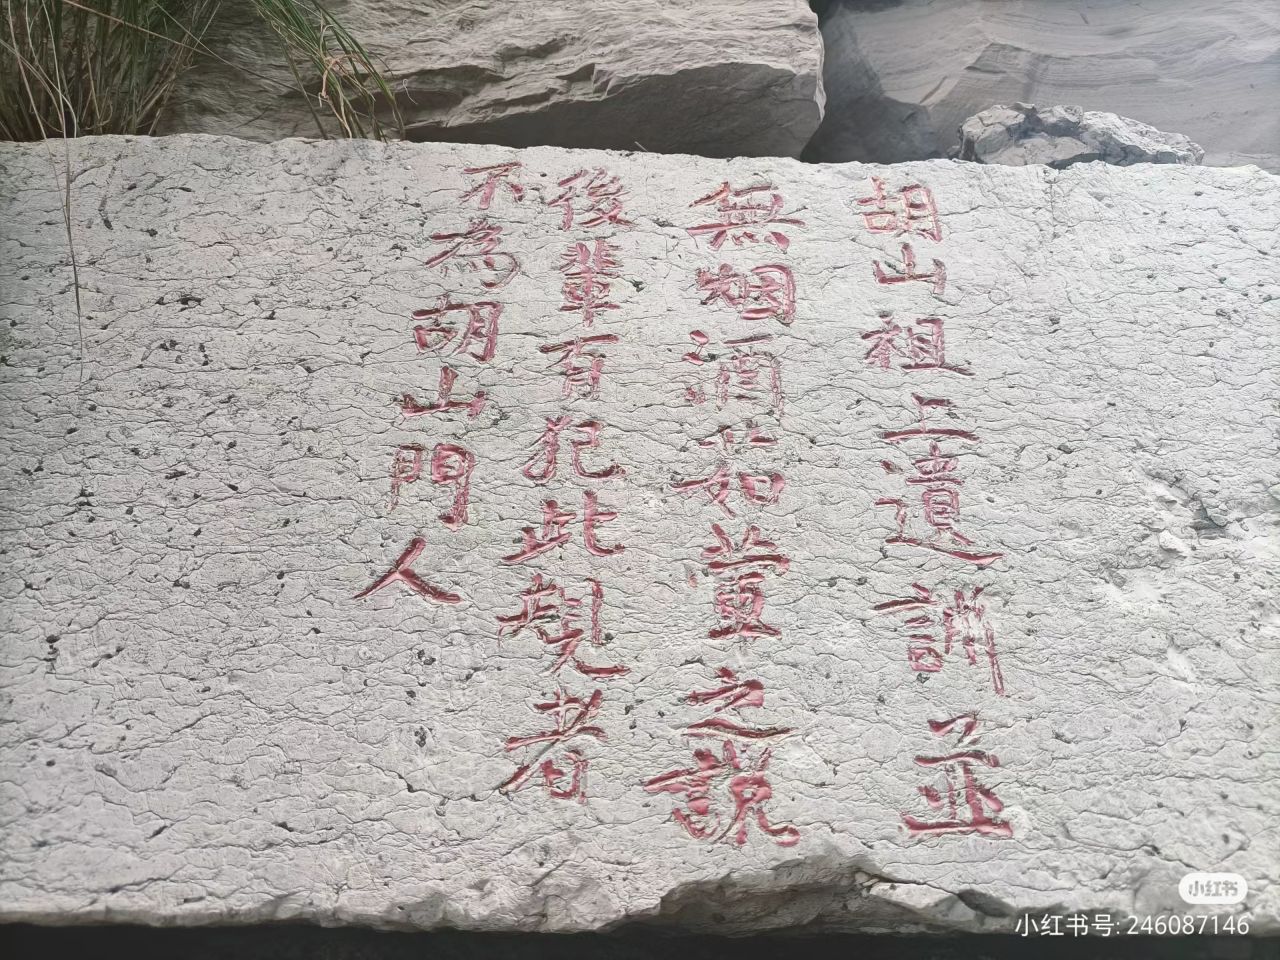 胡山祖上遺訓並
無烟酒茹葷之説
後輩有犯此規者
不為胡山門人
小红书
小红书号: 246087146